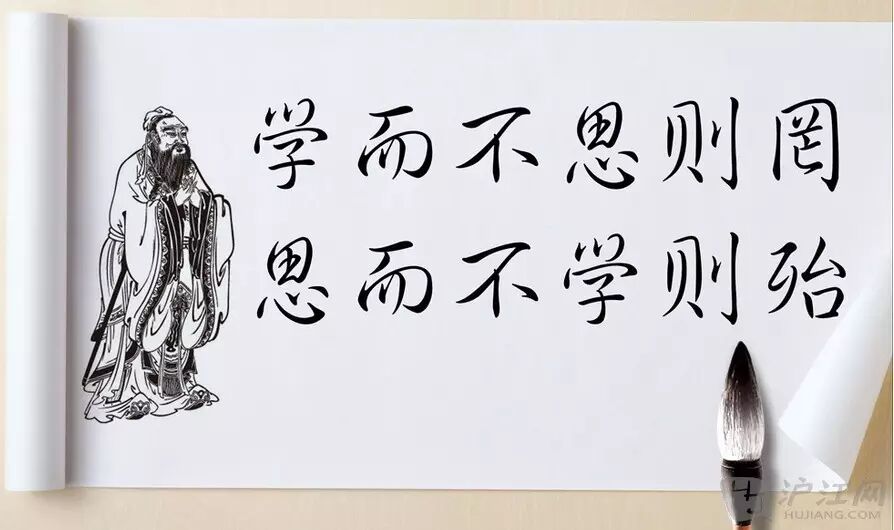 学而不思则罔
思而不学则殆
沪江网
HUJIANG.COM